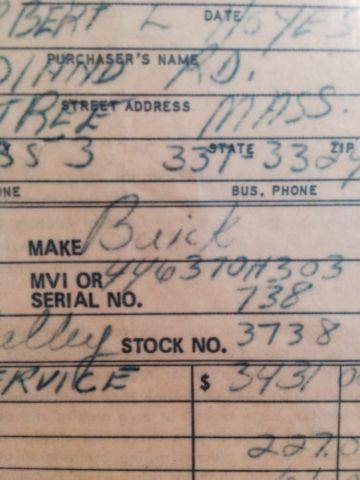 BERT L NOYES
DATE
PURCHASER'S NAME
DIAND RD.
STREET ADDRESS
TREE MASS.
STATE ZIP
353 331-3324
NE BUS. PHONE
MAKE Buick
MVI OR 446370H303
SERIAL NO. 738
elley STOCK NO. 3738
ERVICE $ 3431
227.0